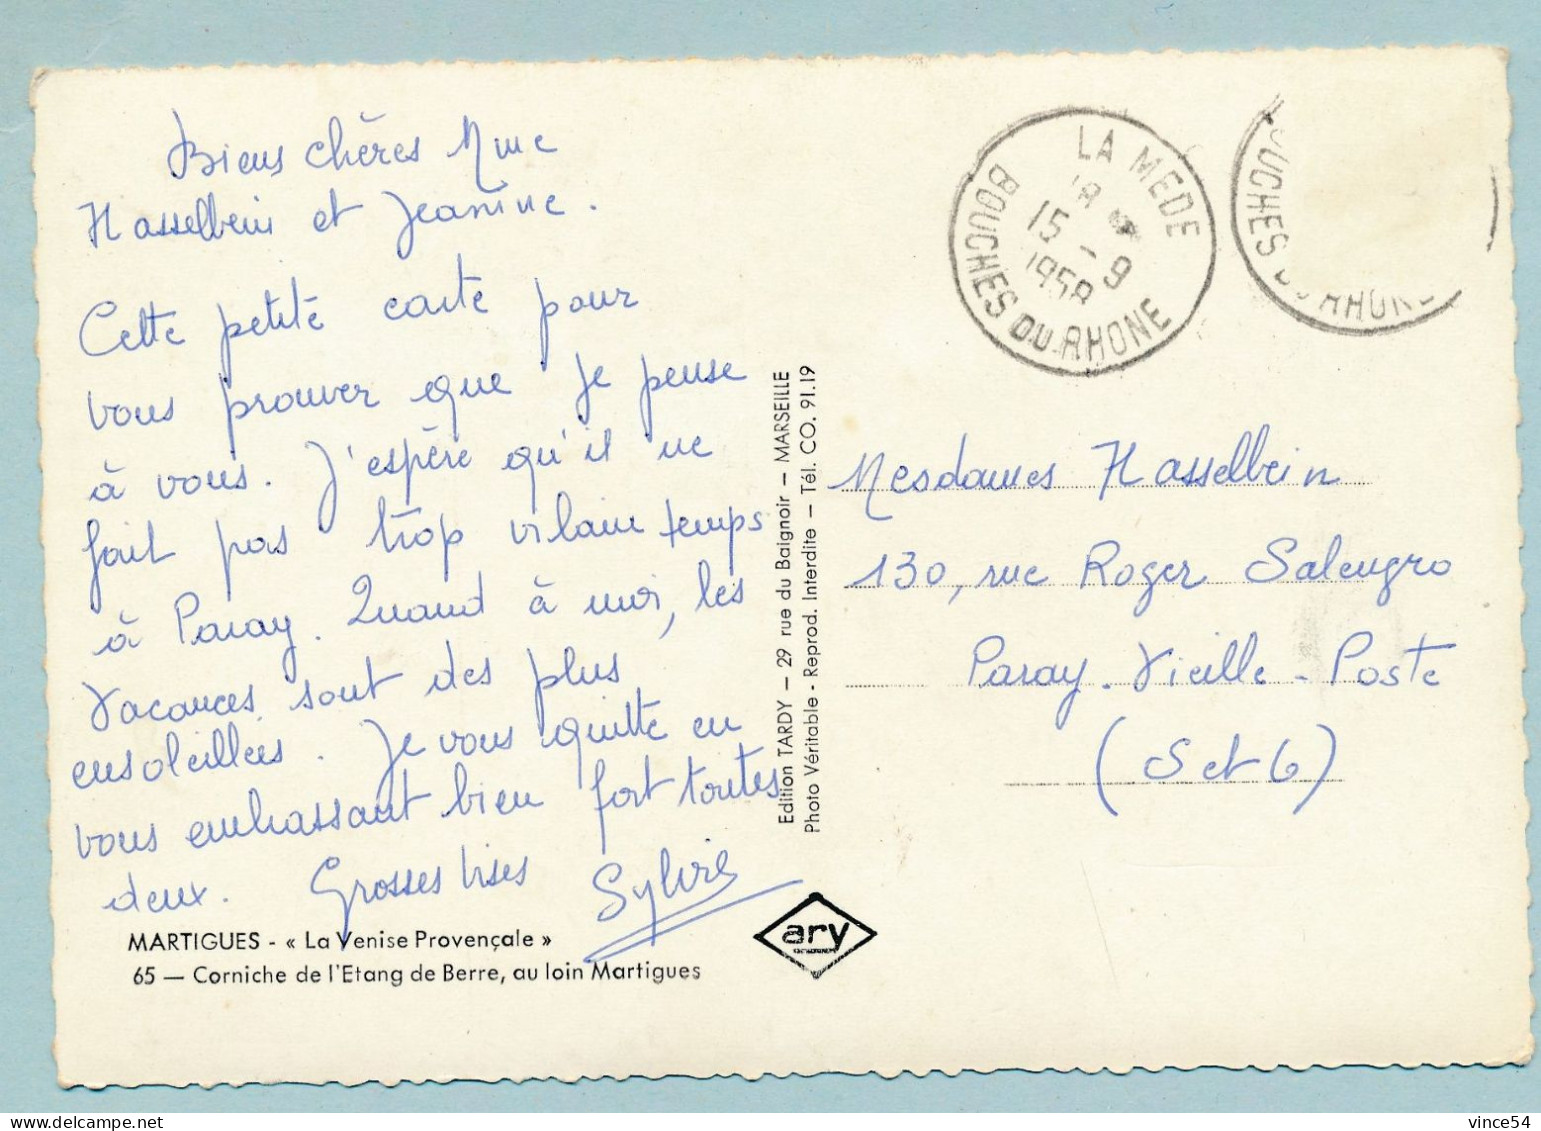 Biens chères Mme
Hasselbein et Jeanine.
Cette petite carte pour
vous prouver que je pense
à vous. J'espère qu'il ne
fait pas trop vilain temps
à Paray. Quand à moi, les
vacances sont des plus
ensoleillées. Je vous quitte en
vous embrassant bien fort toutes
deux. Grosses bises Sylvie
MARTIGUES - « La Venise Provençale »
65 — Corniche de l'Etang de Berre, au loin Martigues
Edition TARDY — 29 rue du Baignoir — MARSEILLE
Photo Véritable - Reprod. Interdite — Tél. CO. 91.19
ary
LA MEDE
18
15 - 9
1958
BOUCHES DU RHONE
BOUCHES DU RHONE
Mesdames Hasselbein
130, rue Roger Salengro
Paray-Vieille-Poste
(S et O)
vince54